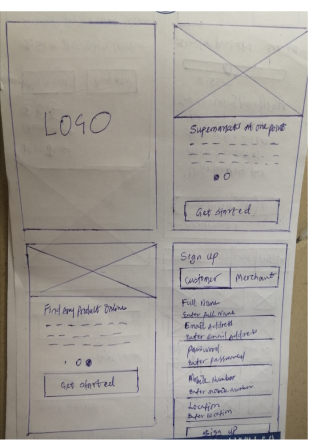 LOGO
Supermarkets at one point
Get started
Find any Product Online
Get started
Sign up
Customer Merchant
Full Name
Enter full Name
Email Address
Enter email address
Password
Enter password
Mobile Number
Enter mobile number
Location
Enter location
sign up